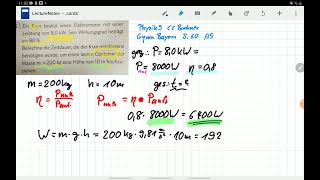 LectureNotes - _cards
Ein Kran besitzt einen Elektromotor mit einer
Leistung von 8,0 kW. Sein Wirkungsgrad beträgt
80 %.
Berechne die Zeitdauer, die der Kran mindestens
benötigt wurde, um einen Container der
Masse m = 200 kg in eine Höhe von 10 m
Physik 9 CC Buchner
Gymn Bayern S. 60 A5
geg.: P = 8,0 kW =
P = 8000 W n = 0,8
m = 200 kg h = 10 m ges.: t = ?
η = P Nutz / P auf. P Nutz = η · P auf
0,8 · 8000 W = 6400 W
W = m · g · h = 200 kg · 9,81 m/s² · 10 m = 192